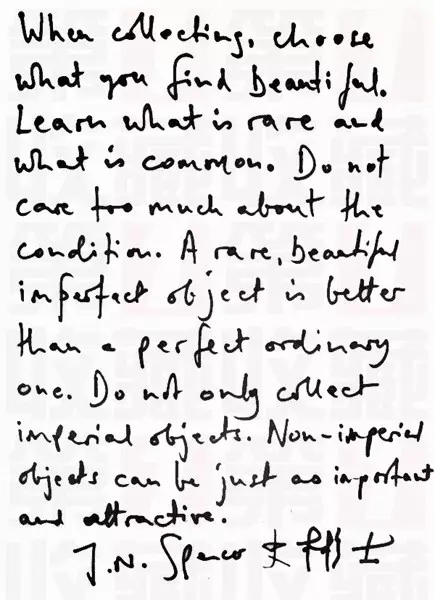 When collecting, choose
what you find beautiful.
Learn what is rare and
what is common. Do not
care too much about the
condition. A rare, beautiful
imperfect object is better
than a perfect ordinary
one. Do not only collect
imperial objects. Non-imperial
objects can be just as important
and attractive.
J.N. Spence